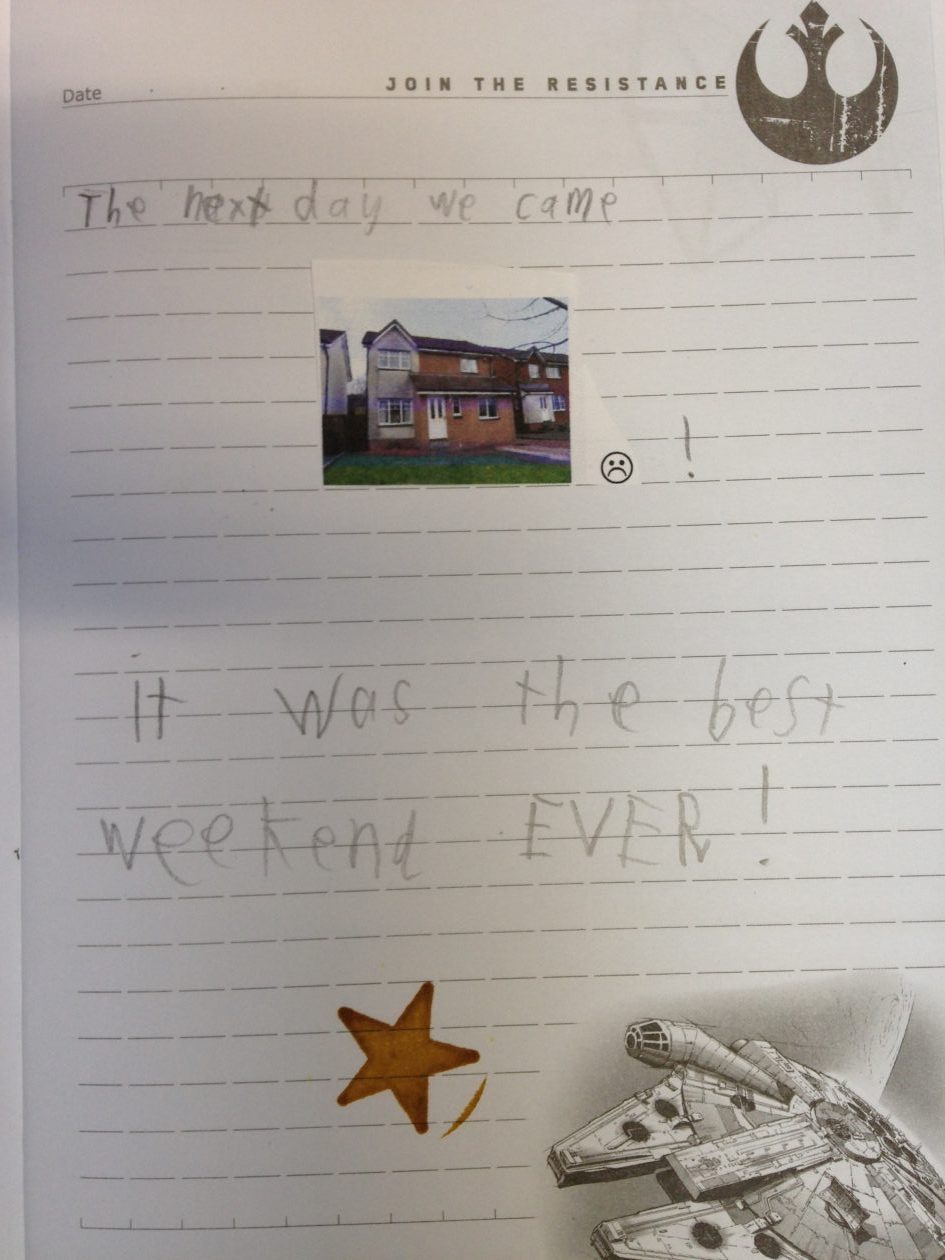 Date
JOIN THE RESISTANCE
The next day we came
!
It was the best
weekend EVER!